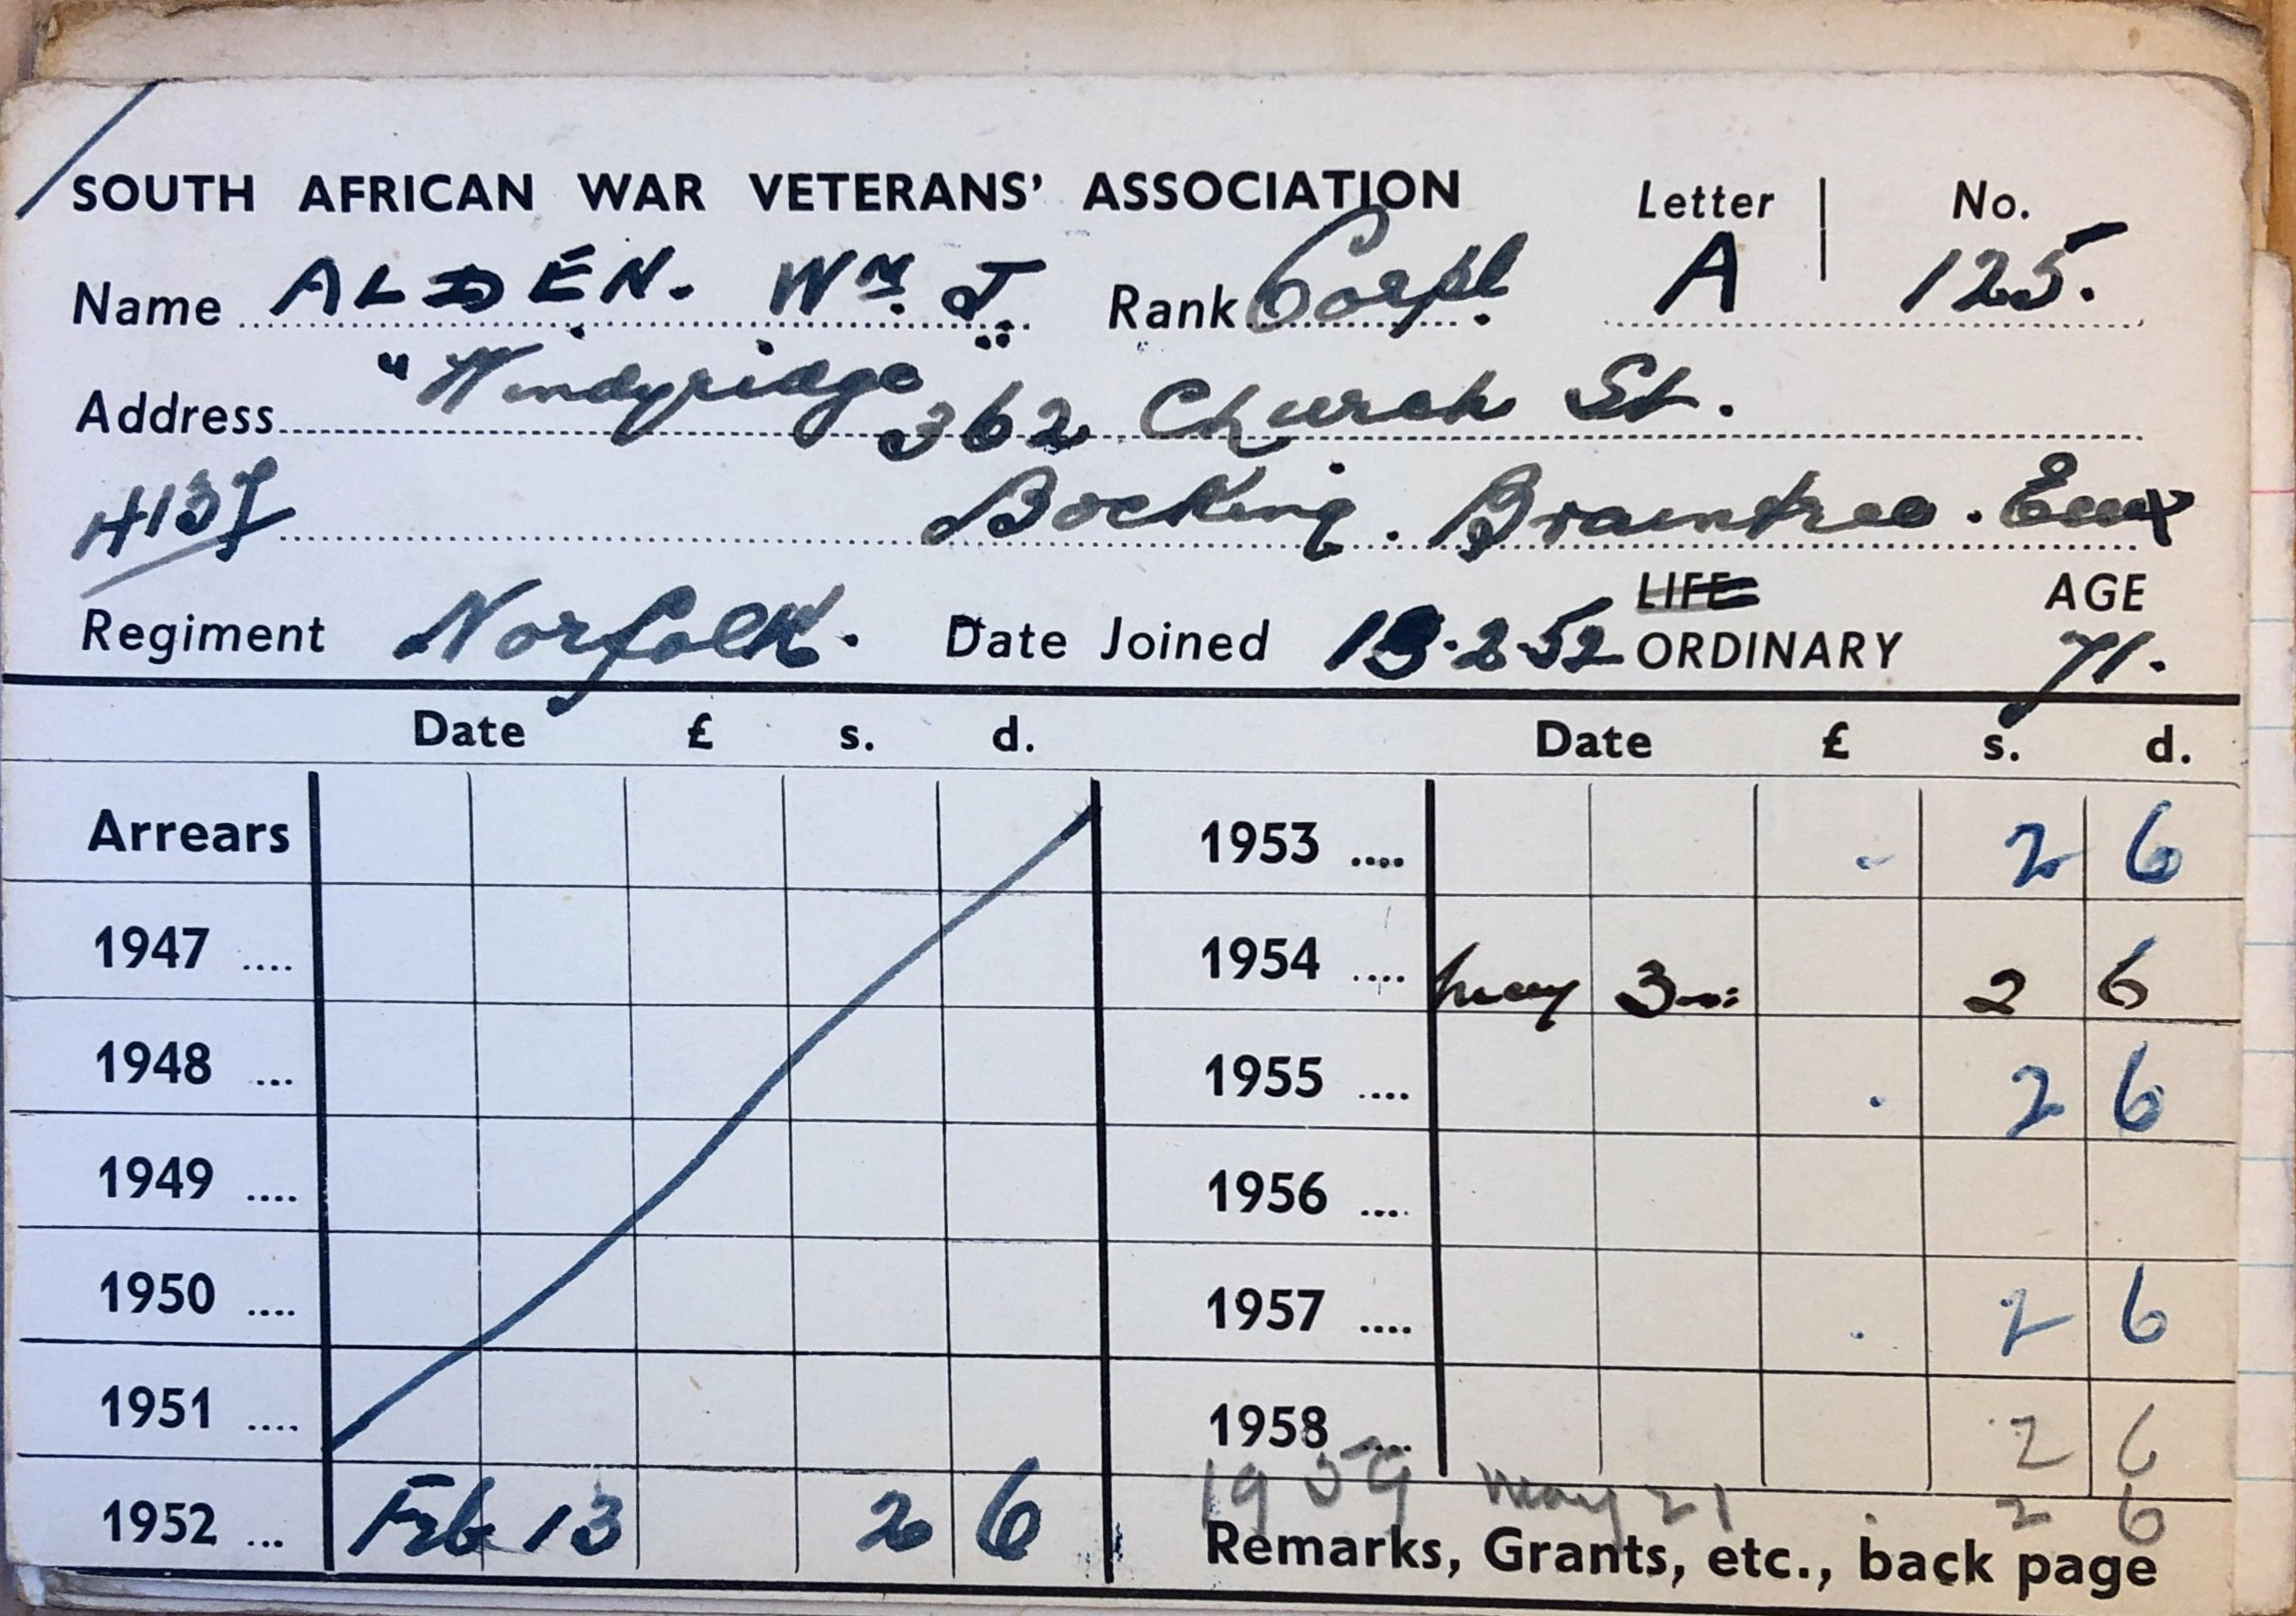 SOUTH AFRICAN WAR VETERANS' ASSOCIATION Letter No.
Name ALDEN. Wm. J. Rank Corpl. A 125.
Address "Windyridge" 362 Church St.
4137 Bocking. Braintree. Essex
Regiment Norfolk. Date Joined 13.2.52 LIFE ORDINARY AGE 71.
Date £ s. d. Date £ s. d.
Arrears 1953 .... - 2 6
1947 .... 1954 .... May 3 2 6
1948 ... 1955 .... . 2 6
1949 .... 1956 ....
1950 .... 1957 .... . 2 6
1951 .... 1958 .... 2 6
1959 May 21 . 2 6
1952 ... Feb 13 2 6 Remarks, Grants, etc., back page